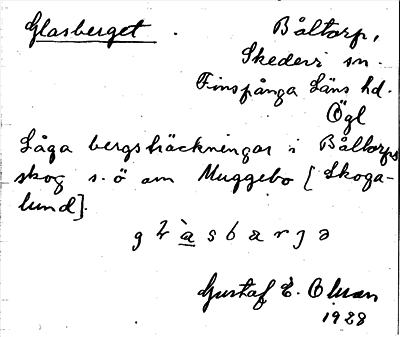 Glasberget. Båltorp,
Skedevi sn.
Finspånga Läns hd.
Ögl
Låga bergsträckningar i Båltorps
skog s.ö om Muggebo [Skoga-
lund].
Gustaf E. Olsson
1928